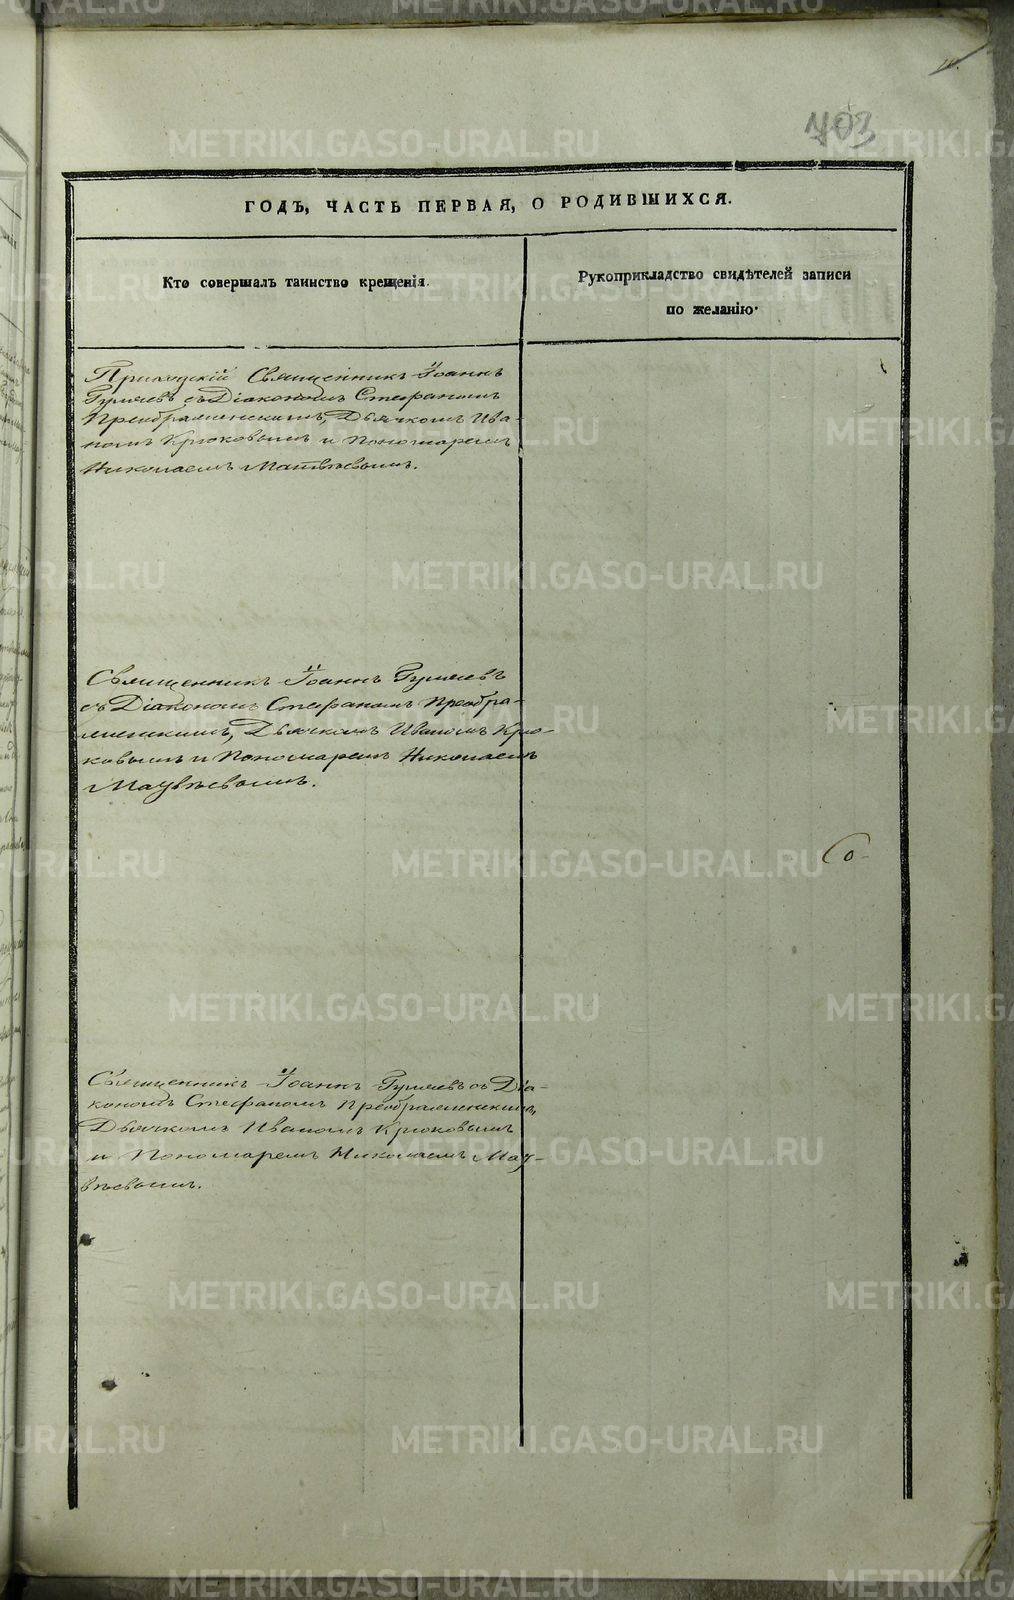 703
ГОДЪ, ЧАСТЬ ПЕРВАЯ, О РОДИВШИХСЯ.
Кто совершалъ таинство крещенія.
Рукоприкладство свидѣтелей записи
по желанію.
Приходскій Священникъ Іоаннъ
Гуляевъ съ Діакономъ Стефаномъ
Преображенскимъ, Дьячкомъ Ива-
номъ Крюковымъ и Пономаремъ
Николаемъ Матвѣевымъ.
Священникъ Іоаннъ Гуляевъ
съ Діакономъ Стефаномъ Преобра-
женскимъ, Дьячкомъ Иваномъ Крю-
ковымъ и Пономаремъ Николаемъ
Матвѣевымъ.
Священникъ Іоаннъ Гуляевъ съ Діа-
кономъ Стефаномъ Преображенскимъ,
Дьячкомъ Иваномъ Крюковымъ
и Пономаремъ Николаемъ Мат-
вѣевымъ.
METRIKI.GASO-URAL.RU